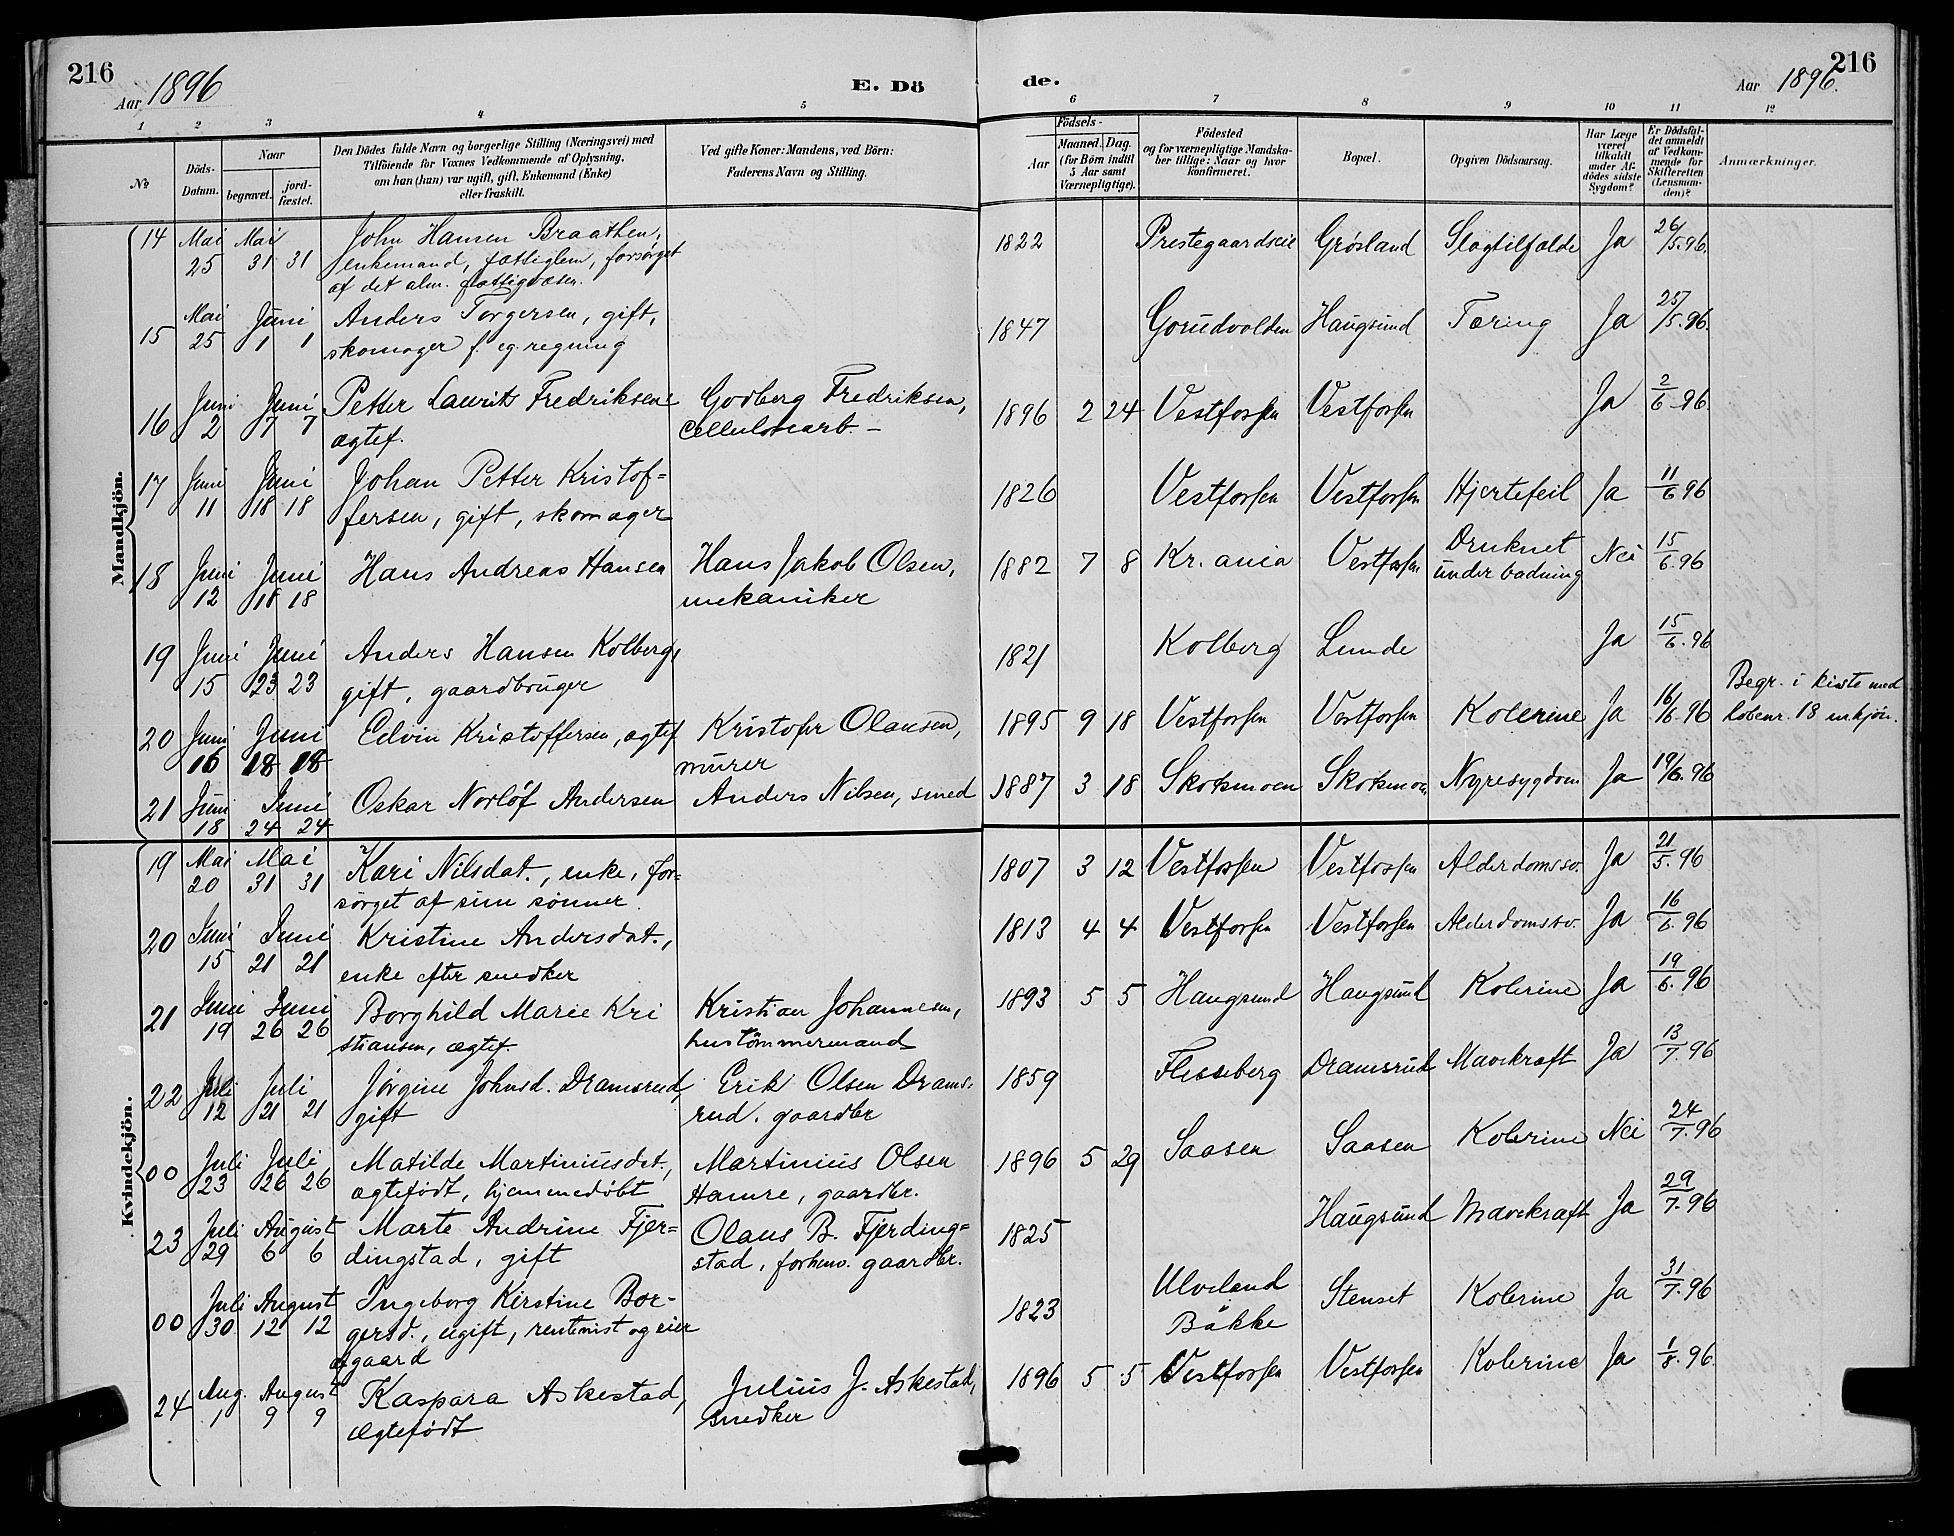 216
Aar 1896
E. Dö
de.
Aar 1896.
216
1 2 3 4 5 6 7 8 9 10 11 12
№
Döds-
Datum.
Naar
begravet.
jord-
fæstet.
Den Dödes fulde Navn og borgerlige Stilling (Næringsvei) med
Tilföiende for Voxnes Vedkommende af Oplysning,
om han (hun) var ugift, gift, Enkemand (Enke)
eller fraskilt.
Ved gifte Koner: Mandens, ved Börn:
Faderens Navn og Stilling.
Födsels-
Aar
Maaned.
Dag.
(for Börn indtil
5 Aar samt
Værnepligtige).
Födested
og for værnepligtige Mandska-
ber tillige: Naar og hvor
konfirmeret.
Bopæl.
Opgiven Dödsaarsag.
Har Læge
været
tilkaldt
under Af-
dödes sidste
Sygdom?
Er Dödsfal-
det anmeldt
af Vedkom-
mende for
Skifteretten
(Lensman-
den)?
Anmærkninger.
Mandkjön.
14 Mai Mai John Hansen Braathen, 1822 Prestegaardseie Grösland Slagtilfælde Ja 26/5.96.
25 31 31 enkemand, fattiglem, forsörget
af det alm. fattigvæsen.
15 Mai Juni Anders Torgersen, gift, 1847 Gorudvolden Haugsund Tæring Ja 25/5.96.
25 1 1 skomager f. eg. regning
16 Juni Juni Petter Laurits Fredriksen Godberg Fredriksen, 1896 2 24 Vestfossen Vestfossen Ja 2/6 96.
2 7 7 ægtef. Cellulosearb.
17 Juni Juni Johan Petter Kristof= 1826 Vestfossen Vestfossen Hjertefeil Ja 11/6 96
11 18 18 fersen, gift, skomager
18 Juni Juni Hans Andreas Hansen Hans Jakob Olsen, 1882 7 8 Kr.ania Vestfossen Druknet Nei 15/6.96
12 18 18 mekaniker under badning
19 Juni Juni Anders Hansen Kolberg, 1821 Kolberg Lunde Ja 15/6.96
15 23 23 gift, gaardbruger
20 Juni Juni Edvin Kristoffersen, ægtef Kristofer Olausen, 1895 9 18 Vestfossen Vestfossen Kolerine Ja 16/6.96 Begr. i kiste med
16 18 18 murer löbenr. 18 mkjön.
21 Juni Juni Oskar Norlöf Andersen Anders Nilsen, smed 1887 3 18 Skotsmoen Skotsmoen Nyresygdom Ja 19/6.96
18 24 24
Kvindekjön.
19 Mai Mai Kari Nilsdat., enke, for= 1807 3 12 Vestfossen Vestfossen Alderdomssv. Ja 21/5.96
20 31 31 sörget af sine sönner.
20 Juni Juni Kristine Andersdat., 1813 4 4 Vestfossen Vestfossen Alderdomssv. Ja 16/6.96
15 21 21 enke efter snedker
21 Juni Juni Borghild Marie Kri Kristian Johannesen, 1893 5 5 Haugsund Haugsund Kolerine Ja 19/6.96
19 26 26 stiansen, ægtef. hustömmermand
22 Juli Juli Jörgine Johnsd. Dramsrud, Erik Olsen Drams- 1859 Flesseberg Dramsrud Mavekræft Ja 13/7.96
12 21 21 gift rud. gaardbr
00 Juli Juli Matilde Martiniusdat., Martinius Olsen 1896 5 29 Saasen Saasen Kolerine Nei 24/7.96
23 26 26 ægtefödt, hjemmedöbt Hamre, gaardbr.
23 Juli August Marte Andrine Fjer= Olaus B. Fjerding= 1825 Haugsund Mavekræft Ja 29/7.96
29 6 6 dingstad, gift stad, forhenv. gaardbr.
00 Juli August Ingeborg Kirstine Bor- 1823 Ulveland Stenset Kolerine Ja 31/7.96
30 12 12 gersd., ugift, rentenist og eier Bäkke
af gaard
24 Aug. August Kaspara Askestad, Julius J. Askestad, 1896 5 5 Vestfossen Vestfossen Kolerine Ja 1/8.96.
1 9 9 Ægtefödt snedker